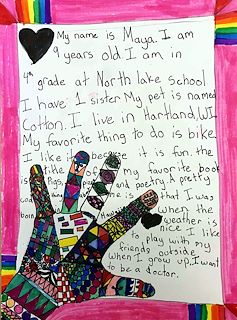 My name is Maya. I am
9 years old. I am in
4th grade at North lake School
I have 1 sister. My pet is named
Cotton. I live in Hartland, WI.
My favorite thing to do is bike.
I like it it is fun. the
title of my favorite book
is Pigs, and poetry. A pretty
is that I was
born when the
weather is
nice I like
to play with my
friends outside
when I grow up, I want
to be a doctor.